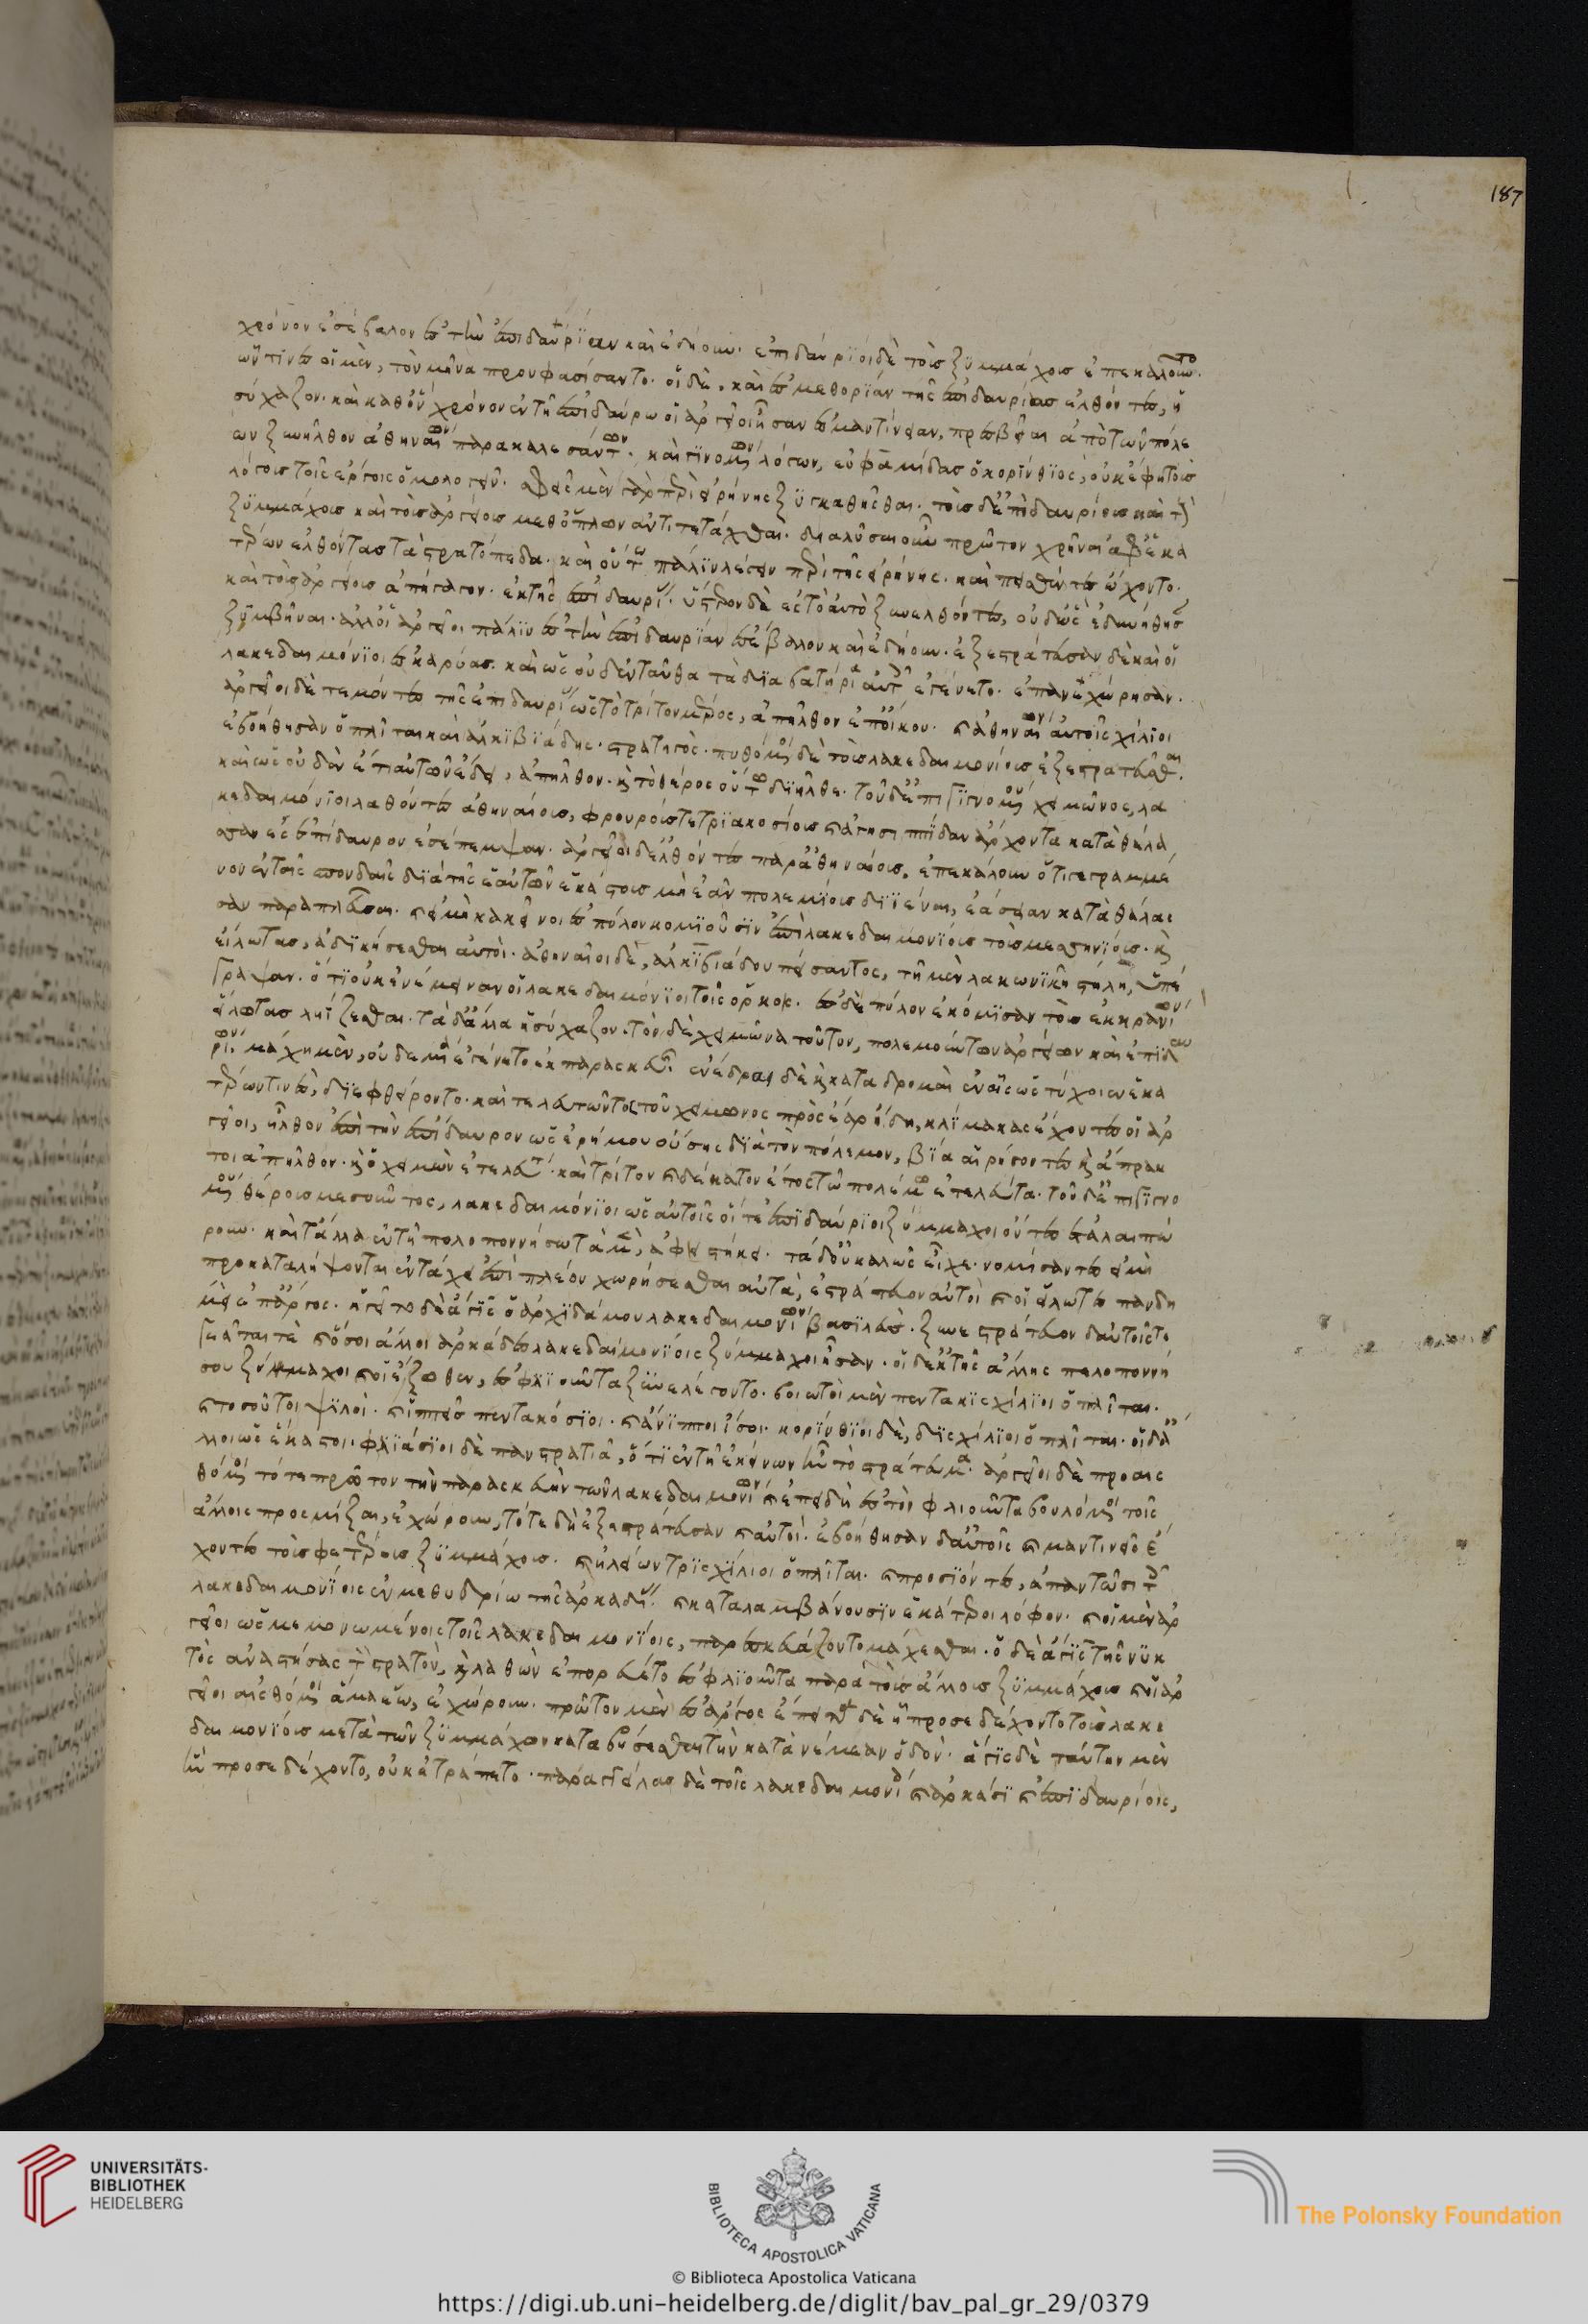 187
χρόνον ἐσέβαλον ἐς τὴν ἐπιδαυρίαν καὶ ἐδήουν. ἐπιδαύριοι δὲ τοὺς ξυμμάχους ἐπεκαλοῦντο.
ὧν τινες οἱ μὲν, τὸν μῆνα προυφασίσαντο. οἱ δὲ, καὶ ἐς μεθορίαν τῆς ἐπιδαυρίας ἐλθόντες, ἡ
σύχαζον. καὶ καθ' ὃν χρόνον ἐν τῇ ἐπιδαύρω οἱ ἀργεῖοι ἦσαν ἐς μαντίνειαν, πρεσβεῖαι ἀπὸ τῶν πόλε
ων ξυνῆλθον ἀθηναίων παρακαλεσάντων. καὶ γινομένων λόγων, εὐφαμίδας ὁ κορίνθιος, οὐκ ἔφη τοὺς
λόγους τοῖς ἔργοις ὁμολογεῖν. σφεῖς μὲν γὰρ περὶ εἰρήνης ξυγκαθῆσθαι. τοὺς δ' ἐπιδαυρίους καὶ τοὺς
ξυμμάχους καὶ τοὺς ἀργείους μεθ' ὅπλων ἀντιτετάχθαι. διαλῦσαι οὖν πρῶτον χρῆναι ἀφ' ἑκα
τέρων ἐλθόντας τὰ στρατόπεδα. καὶ οὕτω πάλιν λέγειν περὶ τῆς εἰρήνης. καὶ πεισθέντες ᾤχοντο.
καὶ τοὺς ἀργείους ἀπήγαγον. ἐκ τῆς ἐπιδαυρίας. ὕστερον δὲ ἐς τὸ αὐτὸ ξυνελθόντες, οὐδ' ὣς ἐδυνήθησαν
ξυμβῆναι. ἀλλ' οἱ ἀργεῖοι πάλιν ἐς τὴν ἐπιδαυρίαν ἐσέβαλον καὶ ἐδήουν. ἐξεστράτευσαν δὲ καὶ οἱ
λακεδαιμόνιοι ἐς καρύας. καὶ ὡς οὐδ' ἐνταῦθα τὰ διαβατήρια αὐτοῖς ἐγένετο. ἐπανεχώρησαν.
ἀργεῖοι δὲ τεμόντες τῆς ἐπιδαυρίας ὡς τὸ τρίτον μέρος, ἀπῆλθον ἐπ' οἴκου. καὶ ἀθηναίων αὐτοῖς χίλιοι
ἐβοήθησαν ὁπλῖται καὶ ἀλκιβιάδης. στρατηγὸς. πυθόμενος δὲ τοὺς λακεδαιμονίους ἐξεστρατεῦσθαι.
καὶ ὡς οὐδὲν ἔτι αὐτῶν ἔδει, ἀπῆλθον. καὶ τὸ θέρος οὕτω διῆλθε. τοῦ δ' ἐπιγιγνομένου χειμῶνος, λα
κεδαιμόνιοι λαθόντες ἀθηναίους, φρουρούς τε τριακοσίους καὶ ἀγησιππίδαν ἄρχοντα κατὰ θάλα
σσαν ἐς ἐπίδαυρον ἐσέπεμψαν. ἀργεῖοι δ' ἐλθόντες παρ' ἀθηναίους, ἐπεκάλουν ὅτι γεγραμμέ
νον ἐν ταῖς σπονδαῖς διὰ τῆς ἑαυτῶν ἑκάστους μὴ ἐᾶν πολεμίους διϊέναι, ἐάσειαν κατὰ θάλασ
σαν παραπλεῦσαι. καὶ εἰ μὴ κἀκεῖνοι ἐς πύλον κομιοῦσιν ἐπὶ λακεδαιμονίους τοὺς μεσσηνίους. καὶ
εἵλωτας, ἀδικήσεσθαι αὐτοὶ. ἀθηναῖοι δὲ, ἀλκιβιάδου πείσαντος, τῇ μὲν λακωνικῇ στήλῃ, ὑπέ
γραψαν. ὅτι οὐκ ἐνέμειναν οἱ λακεδαιμόνιοι τοῖς ὅρκοις. ἐς δὲ πύλον ἐκόμισαν τοὺς ἐκ κρανίων
εἵλωτας ληΐζεσθαι. τὰ δ' ἄλλα ἡσύχαζον. τὸν δὲ χειμῶνα τοῦτον, πολεμούντων ἀργείων καὶ ἐπιδαυ
ρίων. μάχη μὲν, οὐδεμία ἐγένετο ἐκ παρασκευῆς. ἐνέδραι δὲ καὶ καταδρομαὶ ἐν αἷς ὡς τύχοιεν ἑκα
τέρων τινὲς, διεφθείροντο. καὶ τελευτῶντος τοῦ χειμῶνος πρὸς ἔαρ ἤδη, κλίμακας ἔχοντες οἱ ἀρ
γεῖοι, ἦλθον ἐπὶ τὴν ἐπίδαυρον ὡς ἐρήμου οὔσης διὰ τὸν πόλεμον, βίᾳ αἱρήσοντες καὶ ἄπρακ
τοι ἀπῆλθον. καὶ ὁ χειμὼν ἐτελεύτα. καὶ τρίτον καὶ δέκατον ἔτος τῷ πολέμῳ ἐτελεύτα. τοῦ δ' ἐπιγιγνο
μένου θέρους μεσοῦντος, λακεδαιμόνιοι ὡς αὐτοῖς οἵ τε ἐπιδαύριοι ξύμμαχοι ὄντες ἐταλαιπώ
ρουν. καὶ τἆλλα ἐν τῇ πελοποννήσω τὰ μὲν, ἀφειστήκει. τὰ δ' οὐ καλῶς εἶχε. νομίσαντες εἰ μὴ
προκαταλήψονται ἐν τάχει ἐπὶ πλέον χωρήσεσθαι αὐτά, ἐστράτευον αὐτοὶ καὶ οἱ εἵλωτες πανδη
μεὶ ἐπ' ἄργος. ἡγεῖτο δὲ ἆγις ὁ ἀρχιδάμου λακεδαιμονίων βασιλεύς. ξυνεστράτευον δ' αὐτοῖς τε
γεᾶταί τε καὶ ὅσοι ἄλλοι ἀρκάδες λακεδαιμονίοις ξύμμαχοι ἦσαν. οἱ δ' ἐκ τῆς ἄλλης πελοποννή
σου ξύμμαχοι καὶ οἱ ἔξωθεν, ἐς φλιοῦντα ξυνελέγοντο. βοιωτοὶ μὲν πεντακισχίλιοι ὁπλῖται.
καὶ τοσοῦτοι ψιλοί. καὶ ἱππεῖς πεντακόσιοι. καὶ ἄνιπποι ἴσοι. κορίνθιοι δὲ, δισχίλιοι ὁπλῖται. οἱ δ' ἄλ
λοι ὡς ἕκαστοι. φλιάσιοι δὲ πανστρατιᾷ, ὅτι ἐν τῇ ἐκείνων ἦν τὸ στράτευμα. ἀργεῖοι δὲ προαισ
θόμενοι τό τε πρῶτον τὴν παρασκευὴν τῶν λακεδαιμονίων καὶ ἐπειδὴ ἐς τὸν φλιοῦντα βουλόμενοι τοῖς
ἄλλοις προσμίξαι, ἐχώρουν, τότε δὴ ἐξεστράτευσαν καὶ αὐτοί. ἐβοήθησαν δ' αὐτοῖς καὶ μαντινεῖς ἔ
χοντες τοὺς σφετέρους ξυμμάχους. καὶ ἠλείων τρισχίλιοι ὁπλῖται. καὶ προσιόντες, ἀπαντῶσι τοῖς
λακεδαιμονίοις ἐν μεθυδρίω τῆς ἀρκαδίας. καὶ καταλαμβάνουσιν ἑκάτεροι λόφον. καὶ οἱ μὲν ἀρ
γεῖοι ὡς μεμονωμένοις τοῖς λακεδαιμονίοις, παρεσκευάζοντο μάχεσθαι. ὁ δὲ ἆγις τῆς νυκ
τὸς ἀναστήσας τὸν στρατὸν, καὶ λαθὼν ἐπορεύετο ἐς φλιοῦντα παρὰ τοὺς ἄλλους ξυμμάχους καὶ οἱ ἀρ
γεῖοι αἰσθόμενοι ἅμα ἕῳ, ἐχώρουν. πρῶτον μὲν ἐς ἄργος ἔπειτα δὲ ᾗ προσεδέχοντο τοὺς λακε
δαιμονίους μετὰ τῶν ξυμμάχων καταβήσεσθαι τὴν κατὰ νεμέαν ὁδόν. ἆγις δὲ ταύτην μὲν
ἣν προσεδέχοντο, οὐκ ἐτράπετο. παραγγείλας δὲ τοῖς λακεδαιμονίοις καὶ ἀρκάσι καὶ ἐπιδαυρίοις,
UNIVERSITÄTS-
BIBLIOTHEK
HEIDELBERG
BIBLIOTECA APOSTOLICA VATICANA
The Polonsky Foundation
© Biblioteca Apostolica Vaticana
https://digi.ub.uni-heidelberg.de/diglit/bav_pal_gr_29/0379